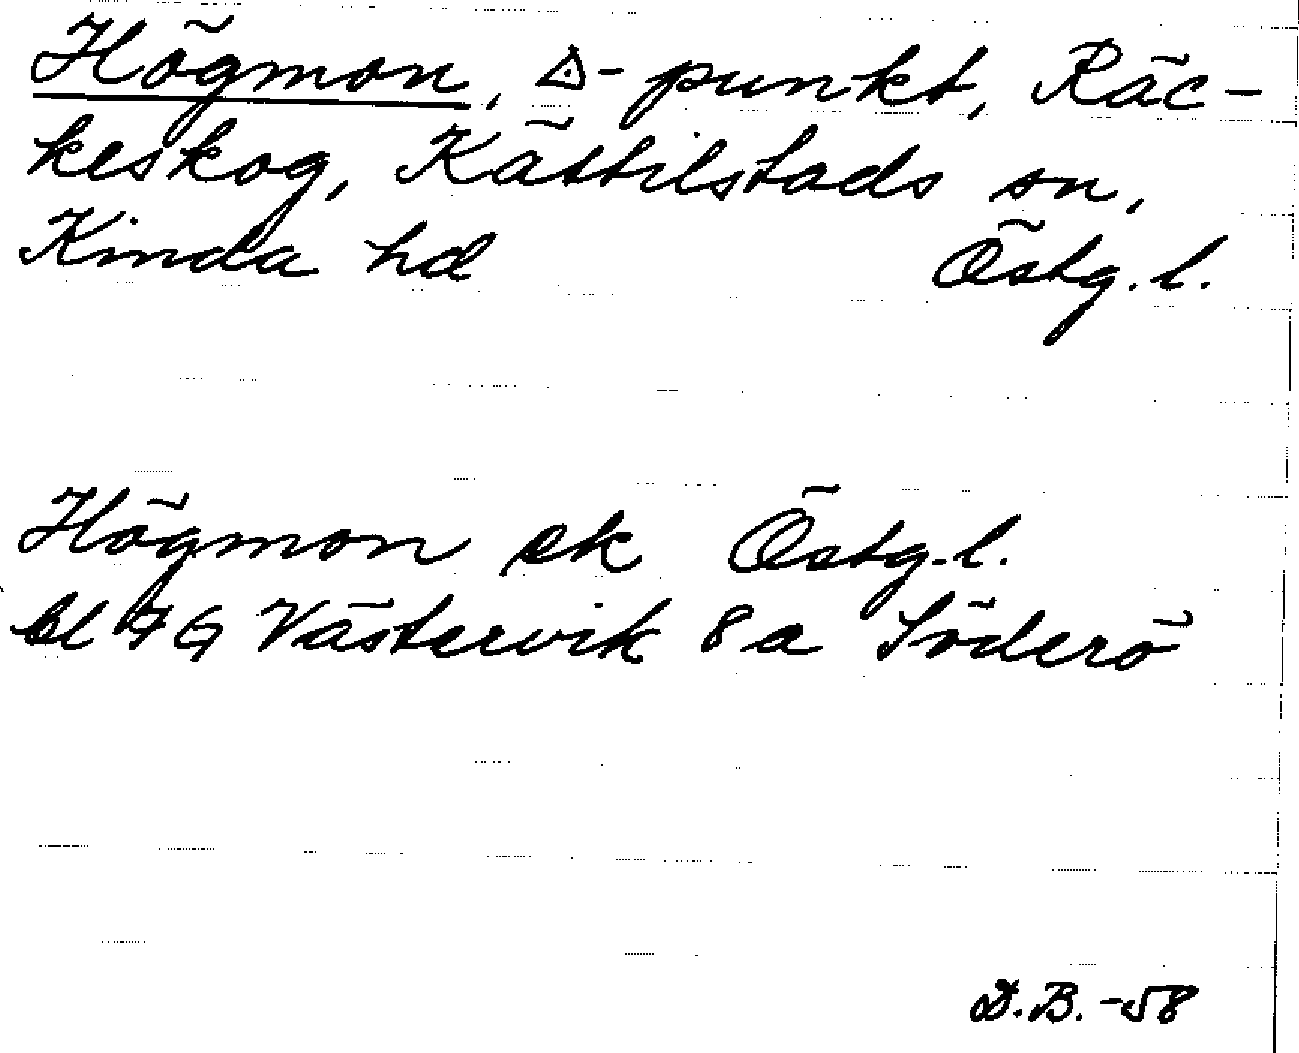 Högmon, △-punkt, Räc-
keskog, Kättilstads sn,
Kinda hd Östg. l.
Högmon ek Östg. l.
bl 7G Västervik 8a Söderö
D.B. -58